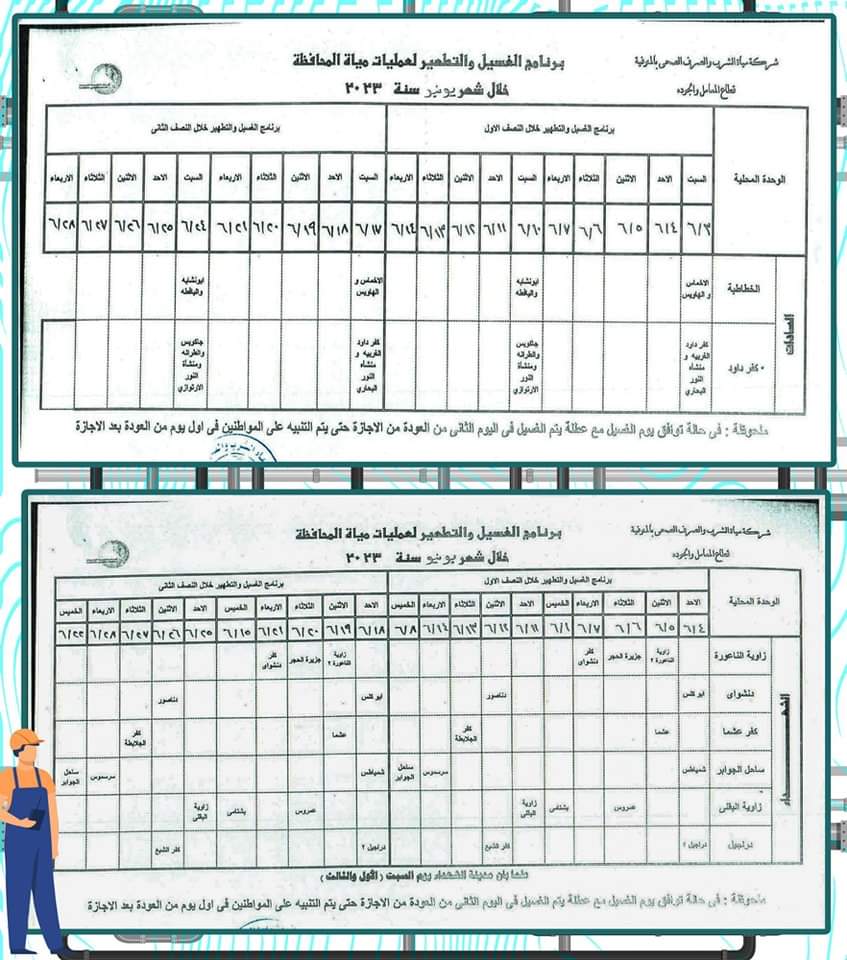 شركة مياة الشرب والصرف الصحى بالمنوفية
قطاع المعامل والجوده
برنامج الغسيل والتطهير لعمليات مياة المحافظة
خلال شهر يونيو سنة ٢٠٢٣
الوحدة المحلية
برنامج الغسيل والتطهير خلال النصف الاول
برنامج الغسيل والتطهير خلال النصف الثانى
السبت الاحد الاثنين الثلاثاء الاربعاء السبت الاحد الاثنين الثلاثاء الاربعاء السبت الاحد الاثنين الثلاثاء الاربعاء السبت الاحد الاثنين الثلاثاء الاربعاء
٦/٣ ٦/٤ ٦/٥ ٦/٦ ٦/٧ ٦/١٠ ٦/١١ ٦/١٢ ٦/١٣ ٦/١٤ ٦/١٧ ٦/١٨ ٦/١٩ ٦/٢٠ ٦/٢١ ٦/٢٤ ٦/٢٥ ٦/٢٦ ٦/٢٧ ٦/٢٨
السادات
الخطاطبة
الاخماس و الهاويس
ابونشابه والباقطه
الاخماس و الهاويس
ابونشابه والباقطه
كفر داود
كفر داود الغربيه و منشأه النور البحاري
جنكويس والطرانه ومنشأة النور الارتوازي
كفر داود الغربيه و منشأه النور البحاري
جنكويس والطرانه ومنشأة النور الارتوازي
ملحوظة : فى حالة توافق يوم الغسيل مع عطلة يتم الغسيل فى اليوم الثانى من العودة من الاجازة حتى يتم التنبيه على المواطنين فى اول يوم من العودة بعد الاجازة
شركة مياة الشرب والصرف الصحى بالمنوفية
قطاع المعامل والجوده
برنامج الغسيل والتطهير لعمليات مياة المحافظة
خلال شهر يونيو سنة ٢٠٢٣
الوحدة المحلية
برنامج الغسيل والتطهير خلال النصف الاول
برنامج الغسيل والتطهير خلال النصف الثانى
الاحد الاثنين الثلاثاء الاربعاء الخميس الاحد الاثنين الثلاثاء الاربعاء الخميس الاحد الاثنين الثلاثاء الاربعاء الخميس الاحد الاثنين الثلاثاء الاربعاء الخميس
٦/٤ ٦/٥ ٦/٦ ٦/٧ ٦/١ ٦/١١ ٦/١٢ ٦/١٣ ٦/١٤ ٦/٨ ٦/١٨ ٦/١٩ ٦/٢٠ ٦/٢١ ٦/١٥ ٦/٢٥ ٦/٢٦ ٦/٢٧ ٦/٢٨ ٦/٢٢
الشهداء
زاوية الناعورة
زاوية الناعورة ٢
جزيرة الحجر
كفر دنشواى
زاوية الناعورة ٢
جزيرة الحجر
كفر دنشواى
دنشواى
ابو كلس
دناصور
ابو كلس
دناصور
كفر عشما
عشما
كفر الجلابطة
عشما
كفر الجلابطة
ساحل الجوابر
شمياطس
سرسموس
ساحل الجوابر
شمياطس
سرسموس
ساحل الجوابر
زاوية البقلى
عمروس
بشتامى
زاوية البقلى
عمروس
بشتامى
زاوية البقلى
دراجيل
دراجيل ٢
كفر الشبع
دراجيل ٢
كفر الشبع
علما بان مدينة الشهداء يوم السبت ( الأول والثالث )
ملحوظة : فى حالة توافق يوم الغسيل مع عطلة يتم الغسيل فى اليوم الثانى من العودة من الاجازة حتى يتم التنبيه على المواطنين فى اول يوم من العودة بعد الاجازة